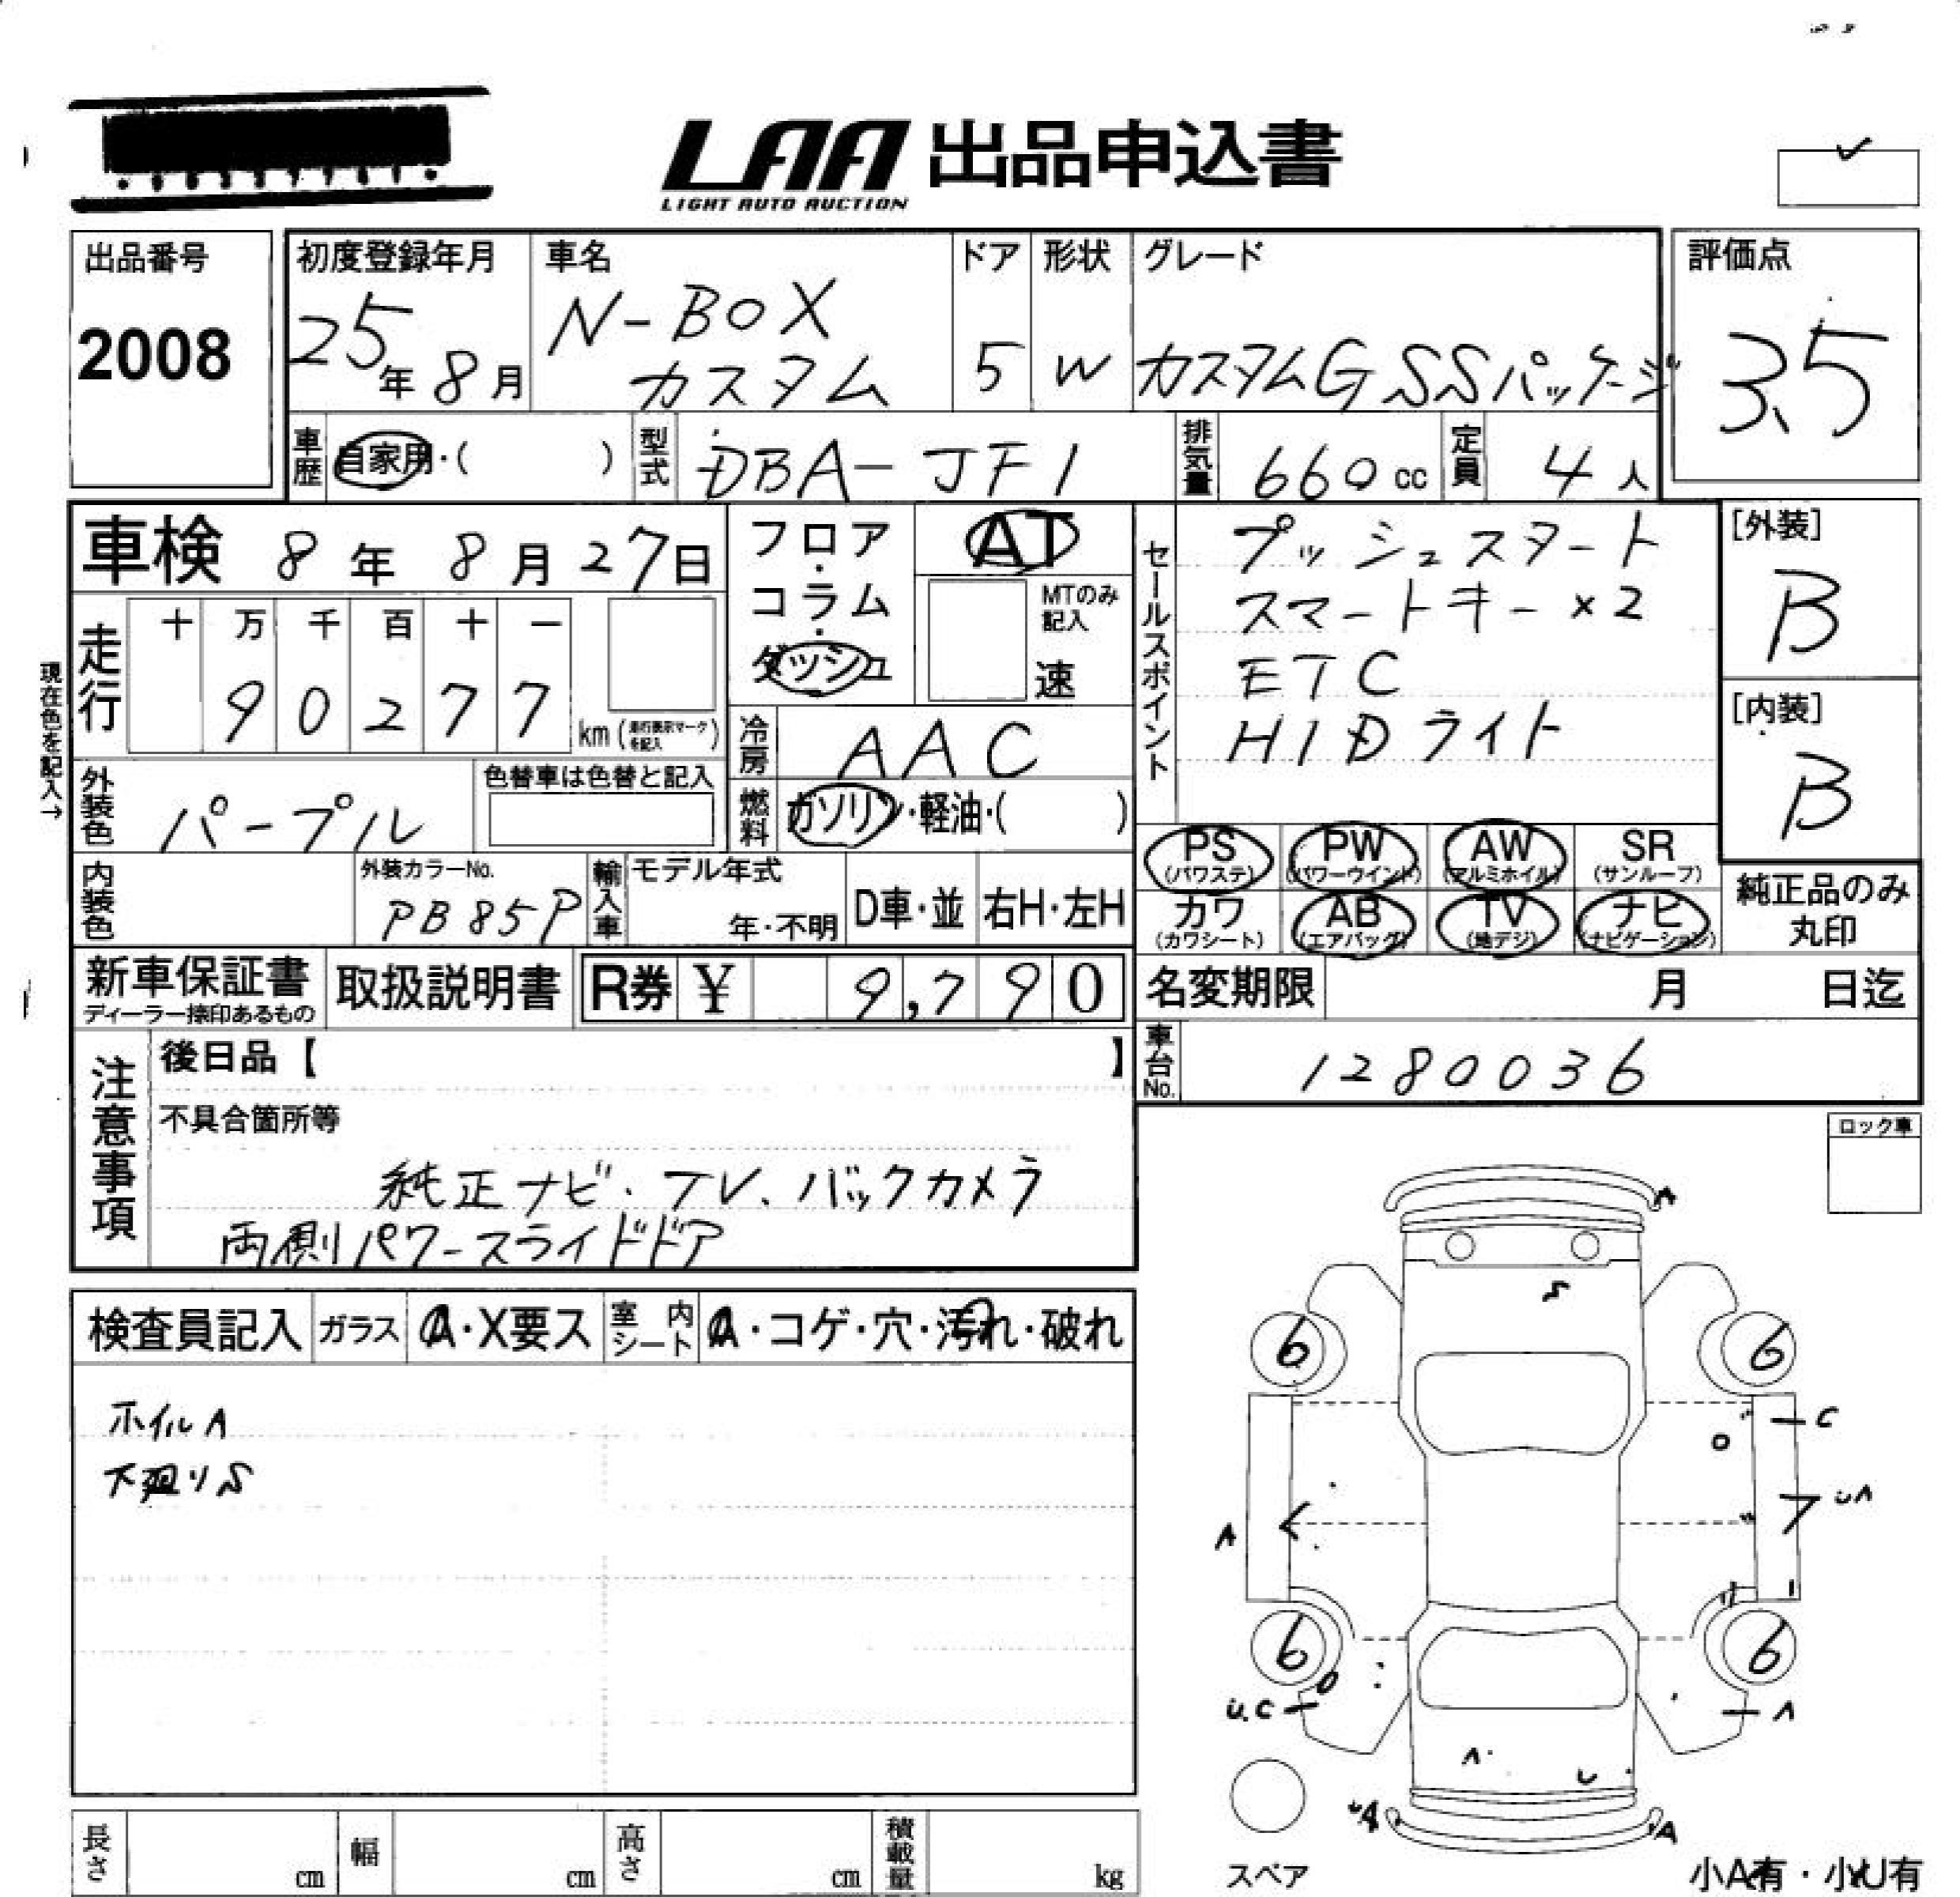 LAA 出品申込書
LIGHT AUTO AUCTION
出品番号
2008
初度登録年月
25年 8月
車名
N-BOX
カスタム
ドア
5
形状
W
グレード
カスタムG SSパッケージ
評価点
3.5
車歴
自家用・( )
型式
DBA-JF1
排気量
660 cc
定員
4人
車検 8年 8月 27日
フロア・コラム・ダッシュ
AT
MTのみ記入
速
セールスポイント
プッシュスタート
スマートキー×2
ETC
HIDライト
[外装]
B
[内装]
B
現在色を記入→
走行
十 万 千 百 十 一
9 0 2 7 7
km (走行表示マークを記入)
冷房
AAC
外装色
パープル
色替車は色替と記入
燃料
ガソリン・軽油・( )
PS (パワステ)
PW (パワーウインド)
AW (アルミホイル)
SR (サンルーフ)
カワ (カワシート)
AB (エアバッグ)
TV (地デジ)
ナビ (ナビゲーション)
純正品のみ
丸印
内装色
外装カラーNo.
PB85P
輸入車
モデル年式
年・不明
D車・並
右H・左H
新車保証書
ディーラー捺印あるもの
取扱説明書
R券 ¥ 9,790
名変期限 月 日迄
車台No.
1280036
注意事項
後日品【 】
不具合箇所等
純正ナビ、TV、バックカメラ
両側パワースライドドア
ロック車
検査員記入
ガラス
A・X要ス
室内シート
A・コゲ・穴・汚れ・破れ
ホイルA
下廻りS
A
S
6
6
C
UA
A
6
6
U.C
A
A
U
A
A
スペア
小A有・小U有
長さ cm
幅 cm
高さ cm
積載量 kg